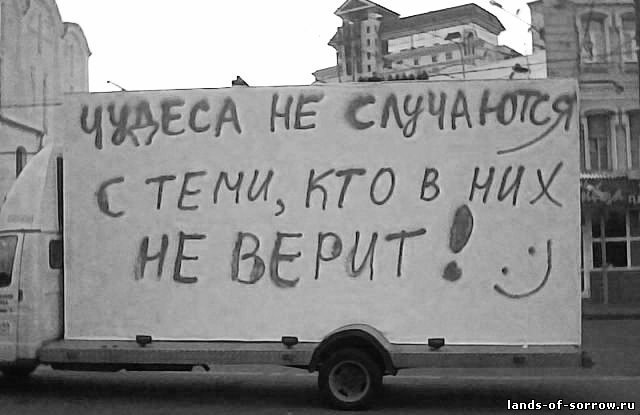 ЧУДЕСА НЕ СЛУЧАЮТСЯ
С ТЕМИ, КТО В НИХ
НЕ ВЕРИТ! :)
lands-of-sorrow.ru